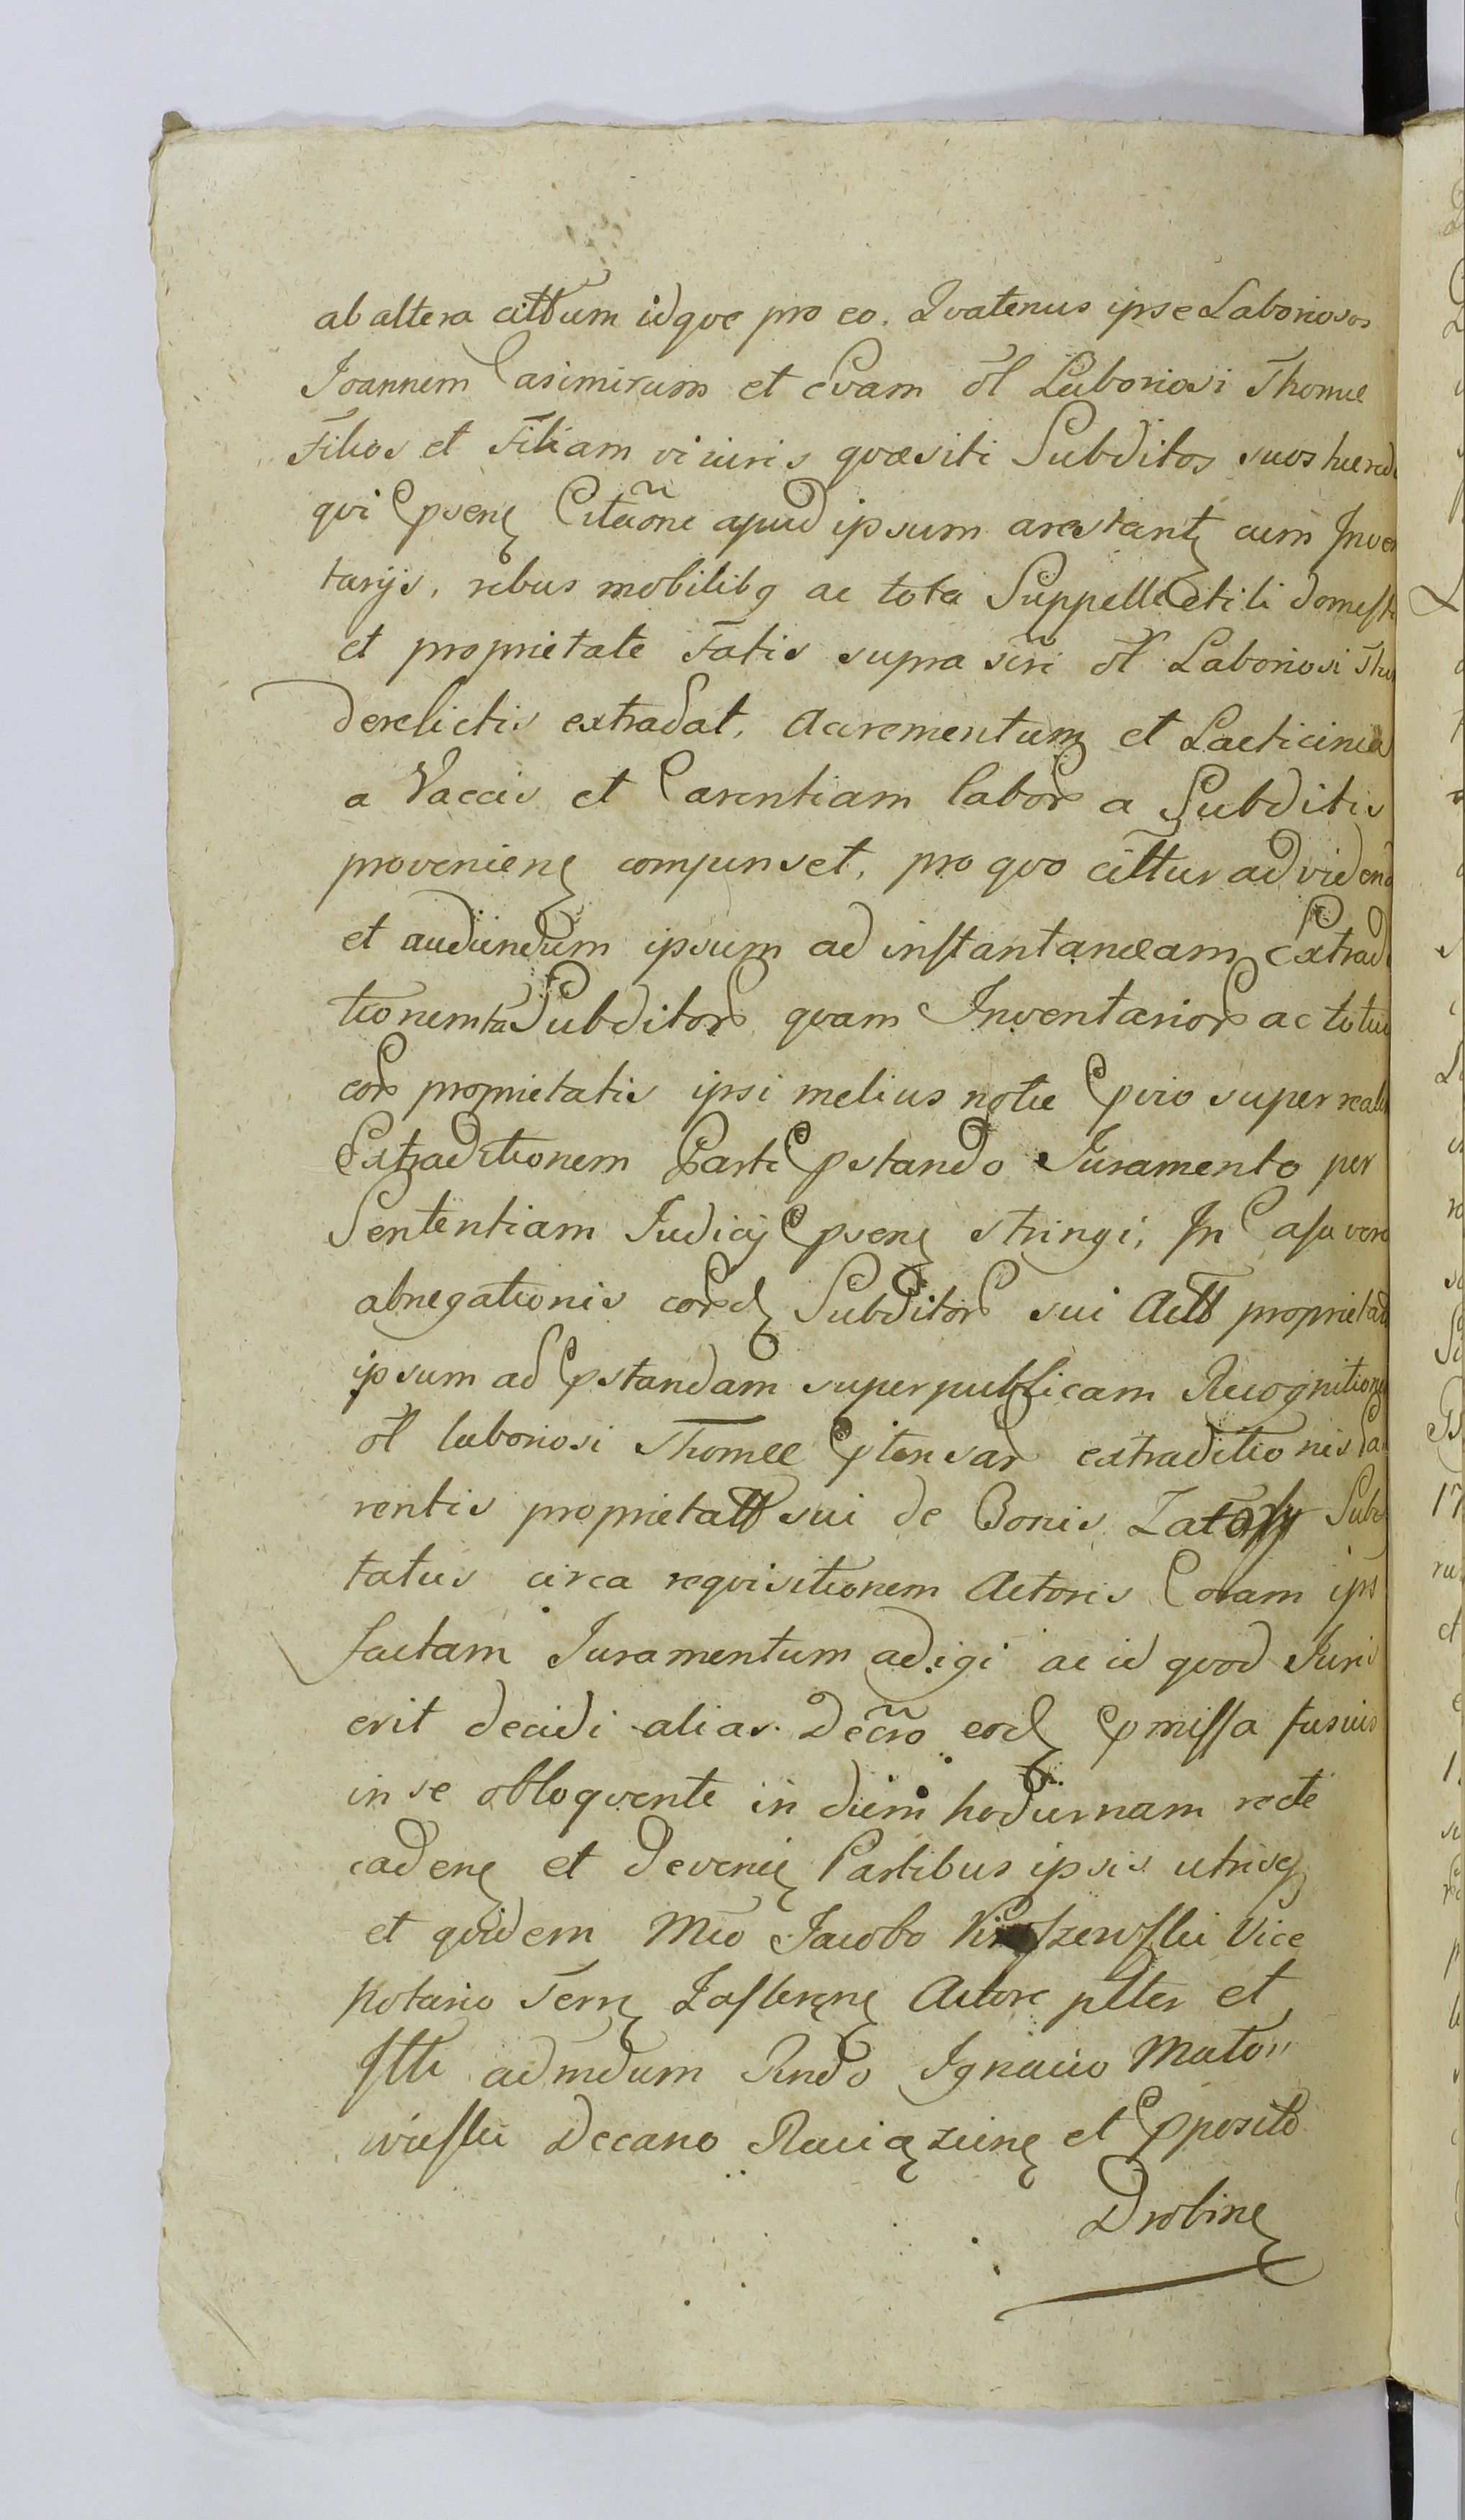 ab altera cittum idque pro eo. Quatenus ipse Laboriosos
Joannem Casimirum et Evam ol Laboriosi Thomæ
Filios et Filiam vi iuris quæsiti Subditos suos hæred
qui pseng Citaõne apud ipsum arestant cum Inven
tarijs, rebus mobilibq ac tota Suppellectili domesti
et proprietate Fatis supra scri ol Laboriosi Tho
derelictis extradat, Accrementum et Lacticinia
a Vaccis et Carentiam labor a Subditis
provenieng compenset, pro quo cittur ad videnđ
et audiendum ipsum ad instantaneam Extradi
tionem tã Subditor quam Inventarior ac totius
eor proprietatis ipsi melius notæ pvio super reale
Extraditionem Parti pstando Juramento per
Sententiam Judicij pseng stringi, In Casu vero
abnegationis eord Subditor sui Actt proprietat
ipsum ad pstandam super publicam Recognitione
ol laboriosi Thomæ ptensar extraditionis Pa
rentis proprietatt sui de Bonis
tatus circa requisitionem Actoris Coram ips
factam Juramentum adigi ac id quod Juris
erit decidi alias. Decro eod pmissa fusius
in se obloquente in diem hodiernam recte
cadeng et deveneg Partibus ipsis utrisq
et quidem Mco Jacobo Vice
Notario Terr Actore plter et
Illi admdum Rndo Ignacio Mato"
wieski Decano Raciążieng et pposito
Drobineg